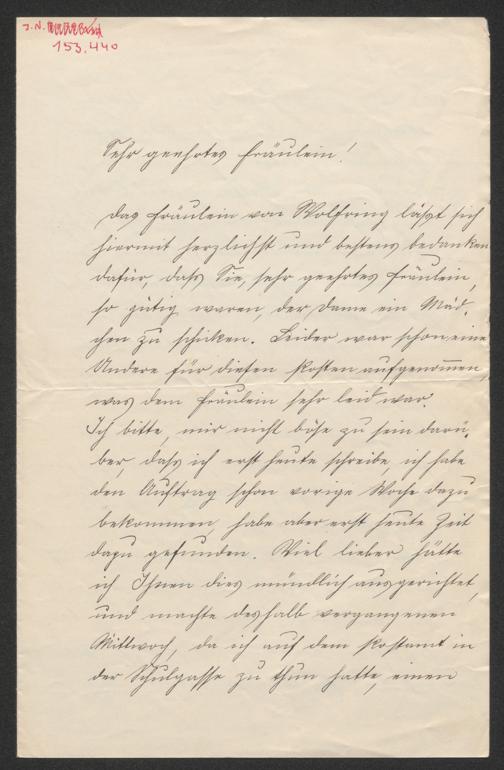 J.N.
153.440
Sehr geehrtes Fräulein!
Das Fräulein von Wolfring läßt sich
hiermit herzlichst und bestens bedanken
dafür, daß Sie, sehr geehrtes Fräulein,
so gütig waren, der Dame ein Mäd-
chen zu schicken. Leider war schon eine
Andere für diesen Posten aufgenommen,
was dem Fräulein sehr leid war.
Ich bitte, mir nicht böse zu sein darü-
ber, daß ich erst heute schreibe, ich habe
den Auftrag schon vorige Woche dazu
bekommen, habe aber erst heute Zeit
dazu gefunden. Viel lieber hätte
ich Ihnen dies mündlich ausgerichtet,
und machte deshalb vergangenen
Mittwoch, da ich auf dem Postamt in
der Schulgasse zu thun hatte, einen